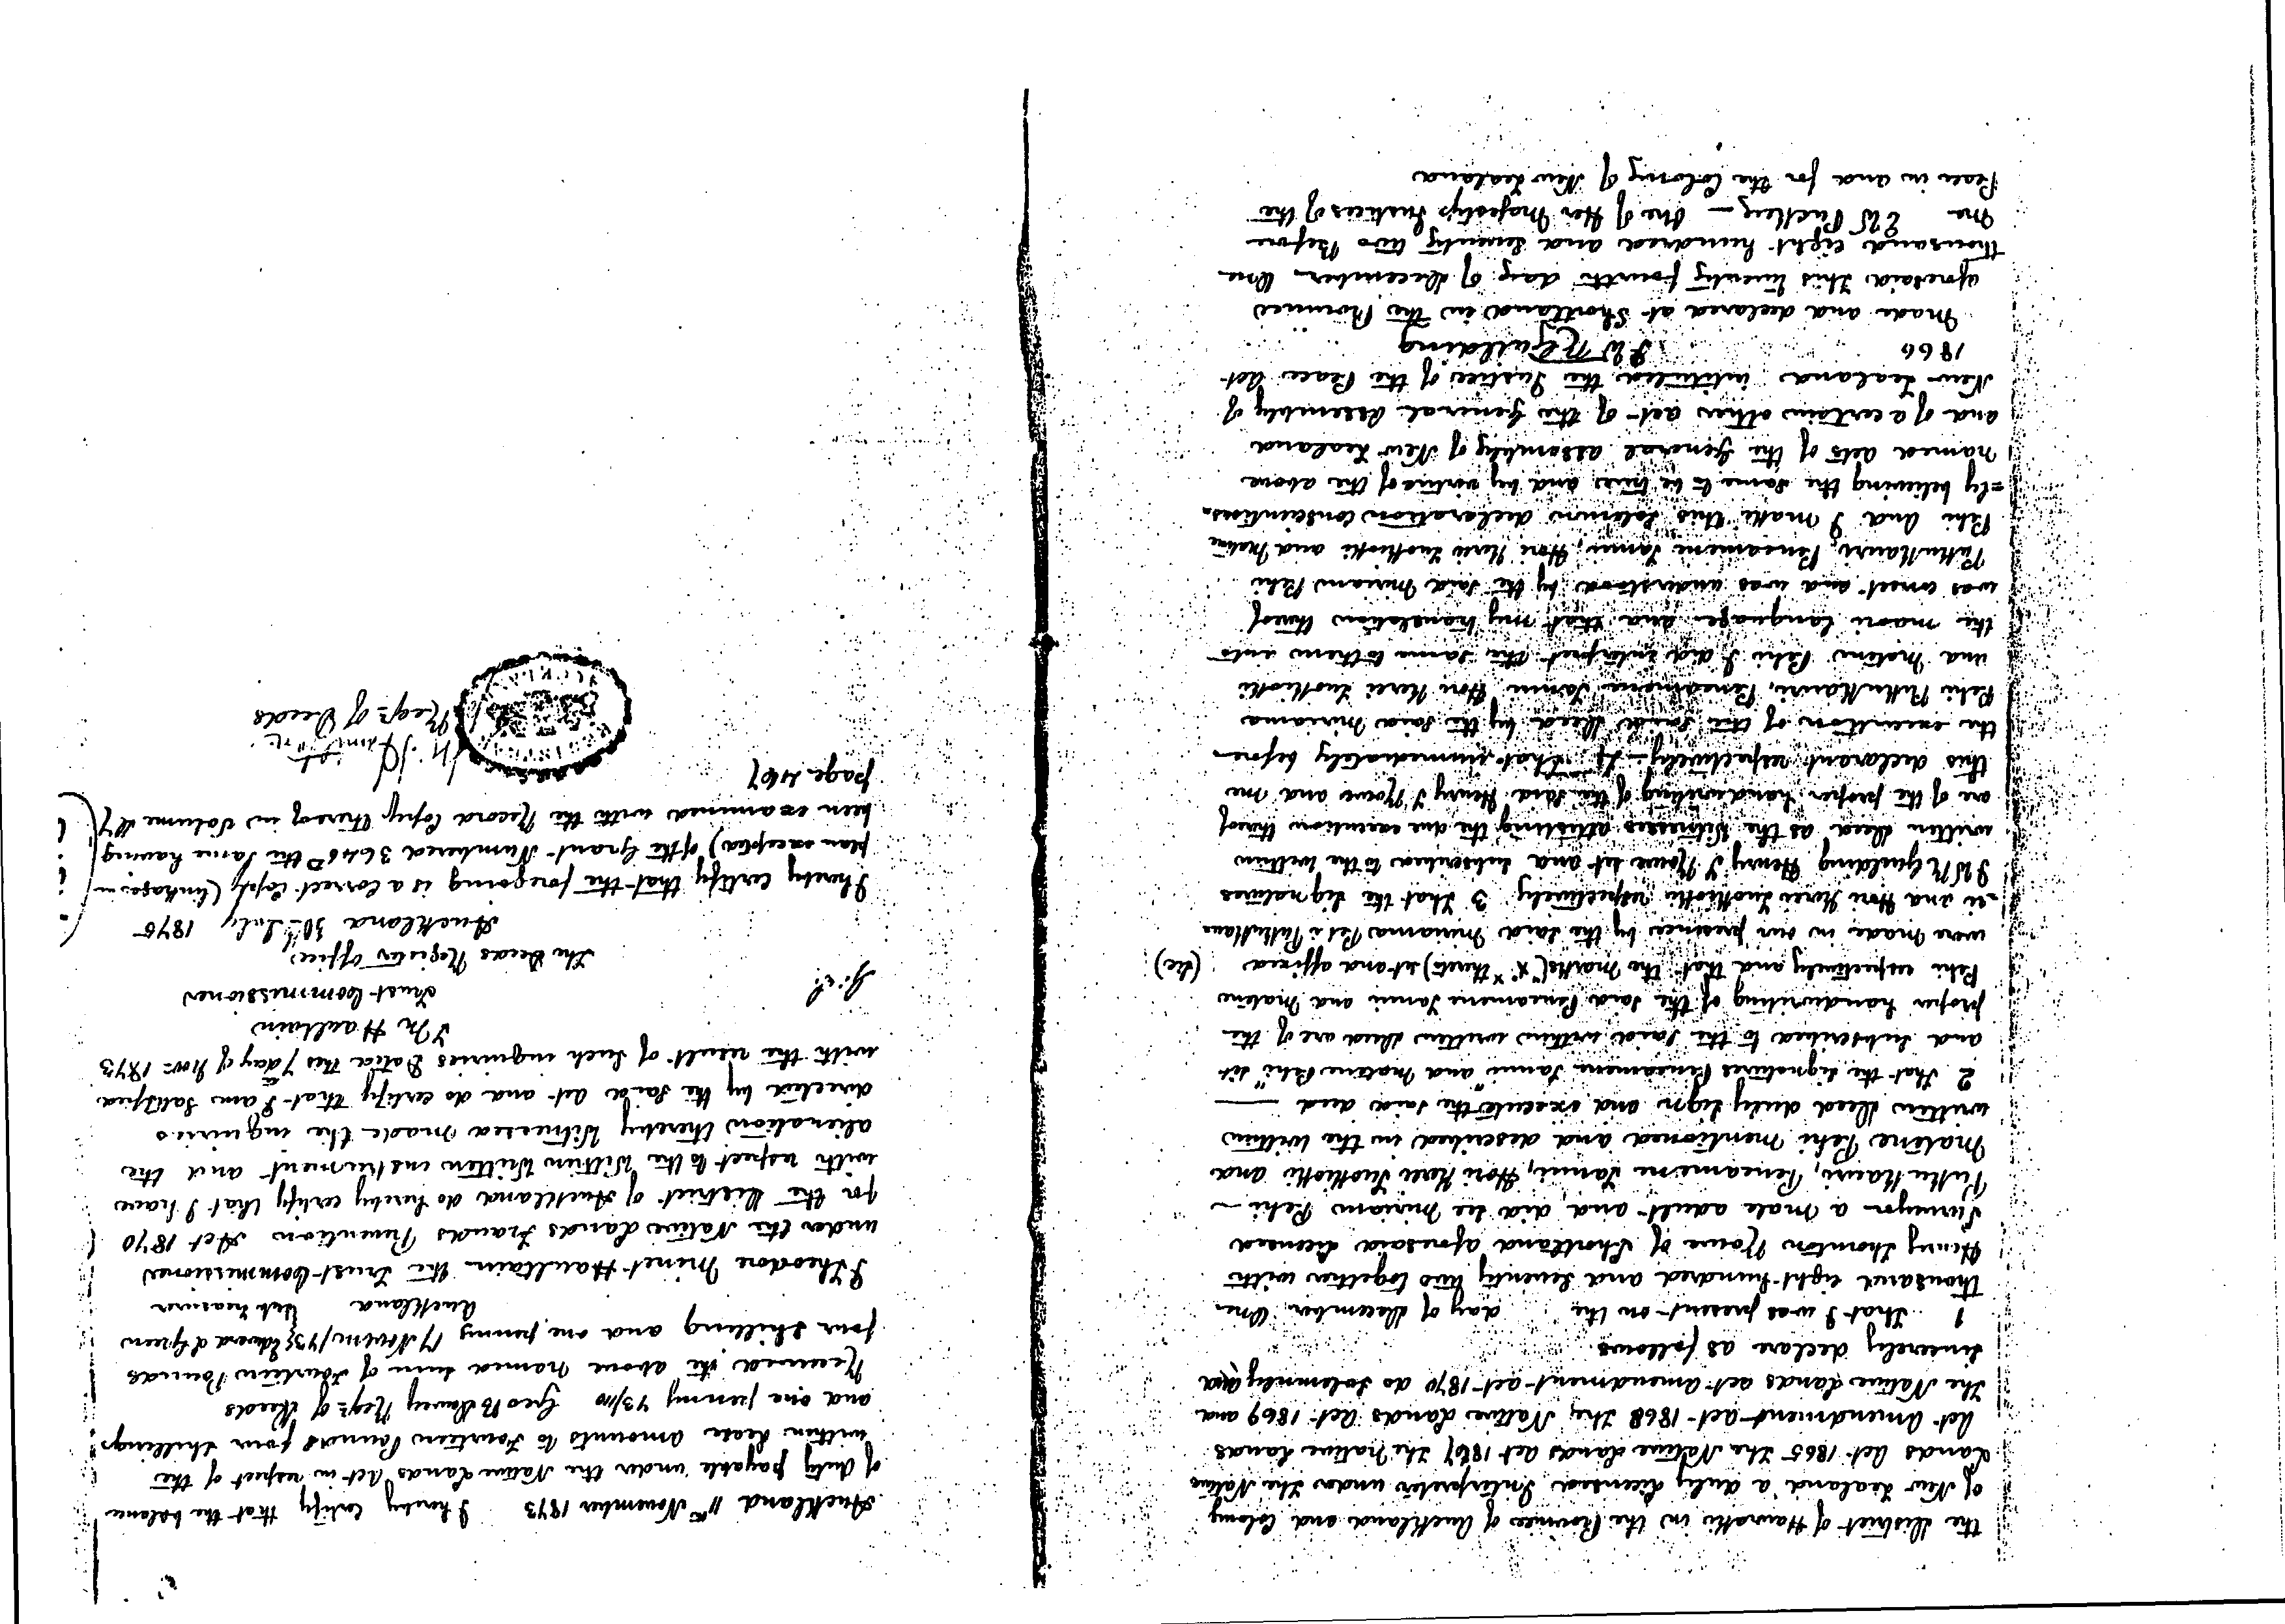 the District of Hauraki in the Province of Auckland and Colony
of New Zealand a duly licensed Interpreter under The Native
Lands Act 1865 The Native Lands Act 1867 The Native Lands
Act Amendment Act 1868 The Native Lands Act 1869 and
The Native Lands Act Amendment Act 1870 do solemnly and
sincerely declare as follows
1 That I was present on the day of December One
thousand eight hundred and seventy two together with
Henry Thornton Rowe of Shortland aforesaid Licensed
Surveyor a male adult and did see Miriam Pehi
Putu Kauri, Peneamene Tamui, Hori Kerei Tuokioki and
Matene Pehi mentioned and described in the within
written Deed duly sign and execute the said deed
2 That the signatures Peneamene Tamui and "Matene Pehi" set
and subscribed to the said within written Deed are of the
proper handwriting of the said Peneamene Tamui and Matene
Pehi respectively and that the marks ("x" thereto) set and affixed (sic)
were made in our presence by the said Mirianna Pehi Putukau
-ri and Hori Kerei Tuokioki respectively 3 That the signatures
J W R Guilding Henry T Rowe set and subscribed to the within
written Deed as the Witnesses attesting the due execution thereof
are of the proper handwriting of the said Henry T Rowe and me
this declarant respectively - 4 That immediately before
the execution of the said Deed by the said Mirianna
Pehi Putukauri, Peneamene Tamui Hori Kerei Tuokioki
and Matene Pehi I did interpret the same to them into
the maori language and that my translation thereof
was correct and was understood by the said Miriam Pehi
Putukauri, Peneamene Tamui, Hori Kerei Tuokioki and Matene
Pehi And I make this solemn declaration conscientious
=ly believing the same to be true and by virtue of the above
named Acts of the General Assembly of New Zealand
and of a certain other act of the General Assembly of
New Zealand intituled the Justices of the Peace Act
1866 J W R Guilding
Made and declared at Shortland in the Province
aforesaid this twenty fourth day of December One
thousand eight hundred and seventy two Before
me E W Puckey - One of Her Majestys Justices of the
Peace in and for the Colony of New Zealand
Auckland 11th November 1873 I hereby certify that the balance
of duty payable under the Native Lands Act in respect of the
within Lease amounts to Fourteen Pounds four shillings
and one penny 73/110 Geo B Davey Regr of Deeds
Received the above named sum of Fourteen Pounds
four shilling and one penny 17 Novem/73 Edward L Green
Auckland Sub treasurer
I Theodore Minet Haultain the Trust Commissioner
under the Native Lands Frauds Prevention Act 1870
for the District of Auckland do hereby certify that I have
with respect to the Within Written instrument and the
alienation thereby Witnessed made the inquiries
directed by the said Act and do certify that I am satisfied
with the result of such inquiries Dated this 7th day of Nov 1873
T M Haultain
Trust Commissioner
The Deeds Register Office
Auckland 30th July 1875
I hereby certify that the foregoing is a correct Copy (linkages in
plan excepted) of the Grant Numbered 3646D the same having
been examined with the Record Copy thereof in Volume
page 467
Regr of Deeds